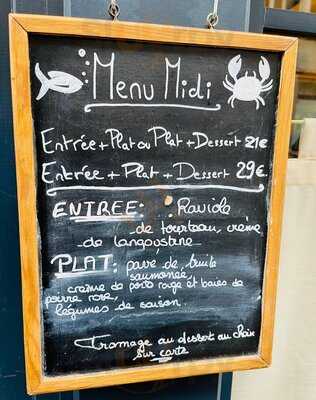 Menu Midi
Entrée + Plat ou Plat + Dessert 21€
Entrée + Plat + Dessert 29€
ENTREE: Raviole
de tourteau, crème
de langoustine
PLAT: pavé de truite
saumonée,
crème de poro rouge et baies de
poivre rose,
légumes de saison.
Fromage au dessert au choix
sur carte